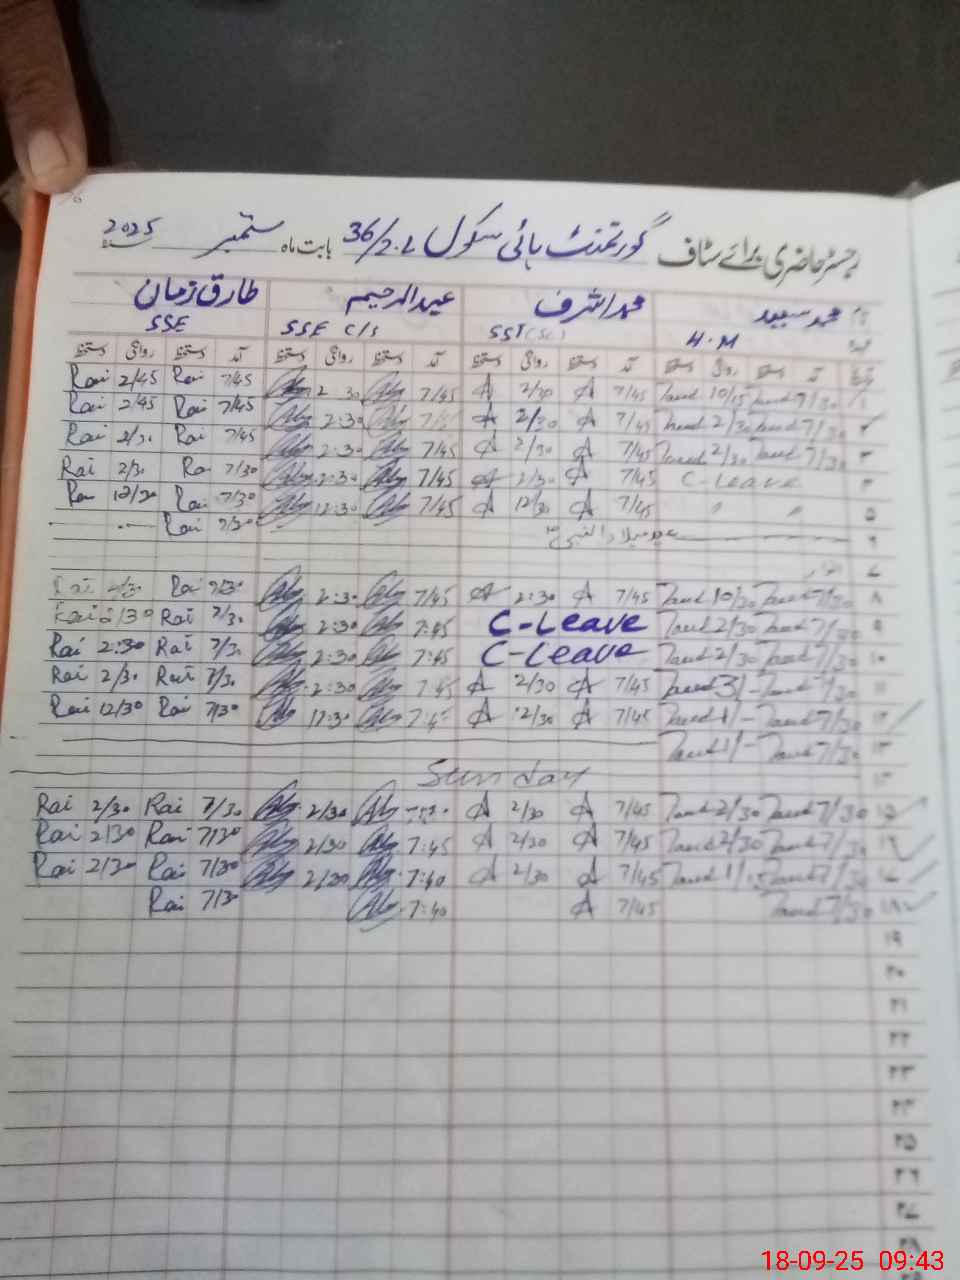 رجسٹر حاضری برائے سٹاف گورنمنٹ ہائی سکول 36/2.L بابت ماہ ستمبر 2025
نام محمد سعید محمد اشرف عبدالرحیم طارق زمان
H.M SST(Sc) SSE C/S SSE
تاریخ آمد دستخط روانگی دستخط آمد دستخط روانگی دستخط آمد دستخط روانگی دستخط آمد دستخط روانگی دستخط
Rai 2/45 Rai 7/45 2:30 7/45 A 2/30 A 7/45 10/15 7/30 ۱
Rai 2/45 Rai 7/45 2:30 A 2/30 A 7/45 2/30 7/30 ۲
Rai 2/30 Rai 7/45 2:30 7/45 A 2/30 A 7/45 2/30 7/30 ۳
Rai 2/30 Rai 7/30 2:30 7/45 A 2/30 A 7/45 C-Leave ۴
Rai 12/30 Rai 7/30 12:30 7/45 A 12/30 A 7/45 " " ۵
Rai 7/30 عید میلادالنبیؐ ۶
۷
Rai 2/30 Rai 7/30 2:30 7/45 A 2:30 A 7/45 10/30 7/30 ۸
Rai 2/30 Rai 7/30 2:30 7:45 C-Leave 2/30 7/30 ۹
Rai 2:30 Rai 7/30 2:30 7:45 C-Leave 2/30 7/30 ۱۰
Rai 2/30 Rai 7/30 2:30 7:45 A 2/30 A 7/45 3/- 7/30 ۱۱
Rai 12/30 Rai 7/30 12:30 7:45 A 12/30 A 7/45 1/- 7/30 ۱۲
1/- 7/30 ۱۳
Sunday ۱۴
Rai 2/30 Rai 7/30 2/30 A 2/30 A 7/45 2/30 7/30 ۱۵
Rai 2/30 Rai 7/30 2/30 7:45 A 2/30 A 7/45 2/30 7/30 ۱۶
Rai 2/30 Rai 7/30 2/30 7:40 A 2/30 A 7/45 1/15 7/30 ۱۷
Rai 7/30 7:40 A 7/45 7/30 ۱۸
۱۹
۲۰
۲۱
۲۲
۲۳
۲۴
۲۵
۲۶
۲۷
۲۸
18-09-25 09:43